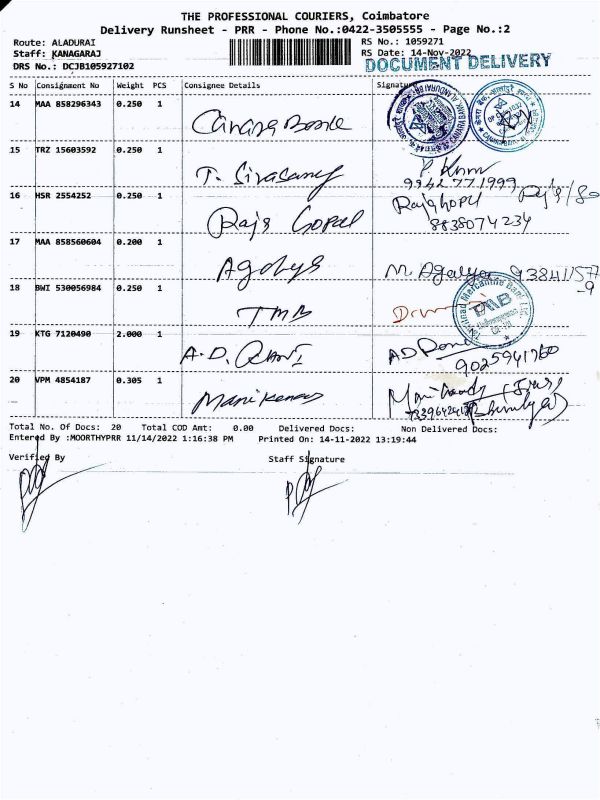 THE PROFESSIONAL COURIERS, Coimbatore
Delivery Runsheet - PRR - Phone No.:0422-3505555 - Page No.:2
Route: ALADURAI
Staff: KANAGARAJ
DRS No.: DCJB105927102
RS No.: 1059271
RS Date: 14-Nov-2022
DOCUMENT DELIVERY
S No Consignment No Weight PCS Consignee Details Signature
14 MAA 858296343 0.250 1 Canara
15 TRZ 15603592 0.250 1 T. Sivasamy
9942771999
16 HSR 2554252 0.250 1 Raja Gopal Rajghopu
8838074234
17 MAA 858560604 0.200 1 M. Agalya
18 BWI 530056984 0.250 1 TMB
19 KTG 7120490 2.000 1 A.D. AD
9025941760
20 VPM 4854187 0.305 1 Mani
Total No. Of Docs: 20 Total COD Amt: 0.00 Delivered Docs: Non Delivered Docs:
Entered By :MOORTHYPRR 11/14/2022 1:16:38 PM Printed On: 14-11-2022 13:19:44
Verified By Staff Signature